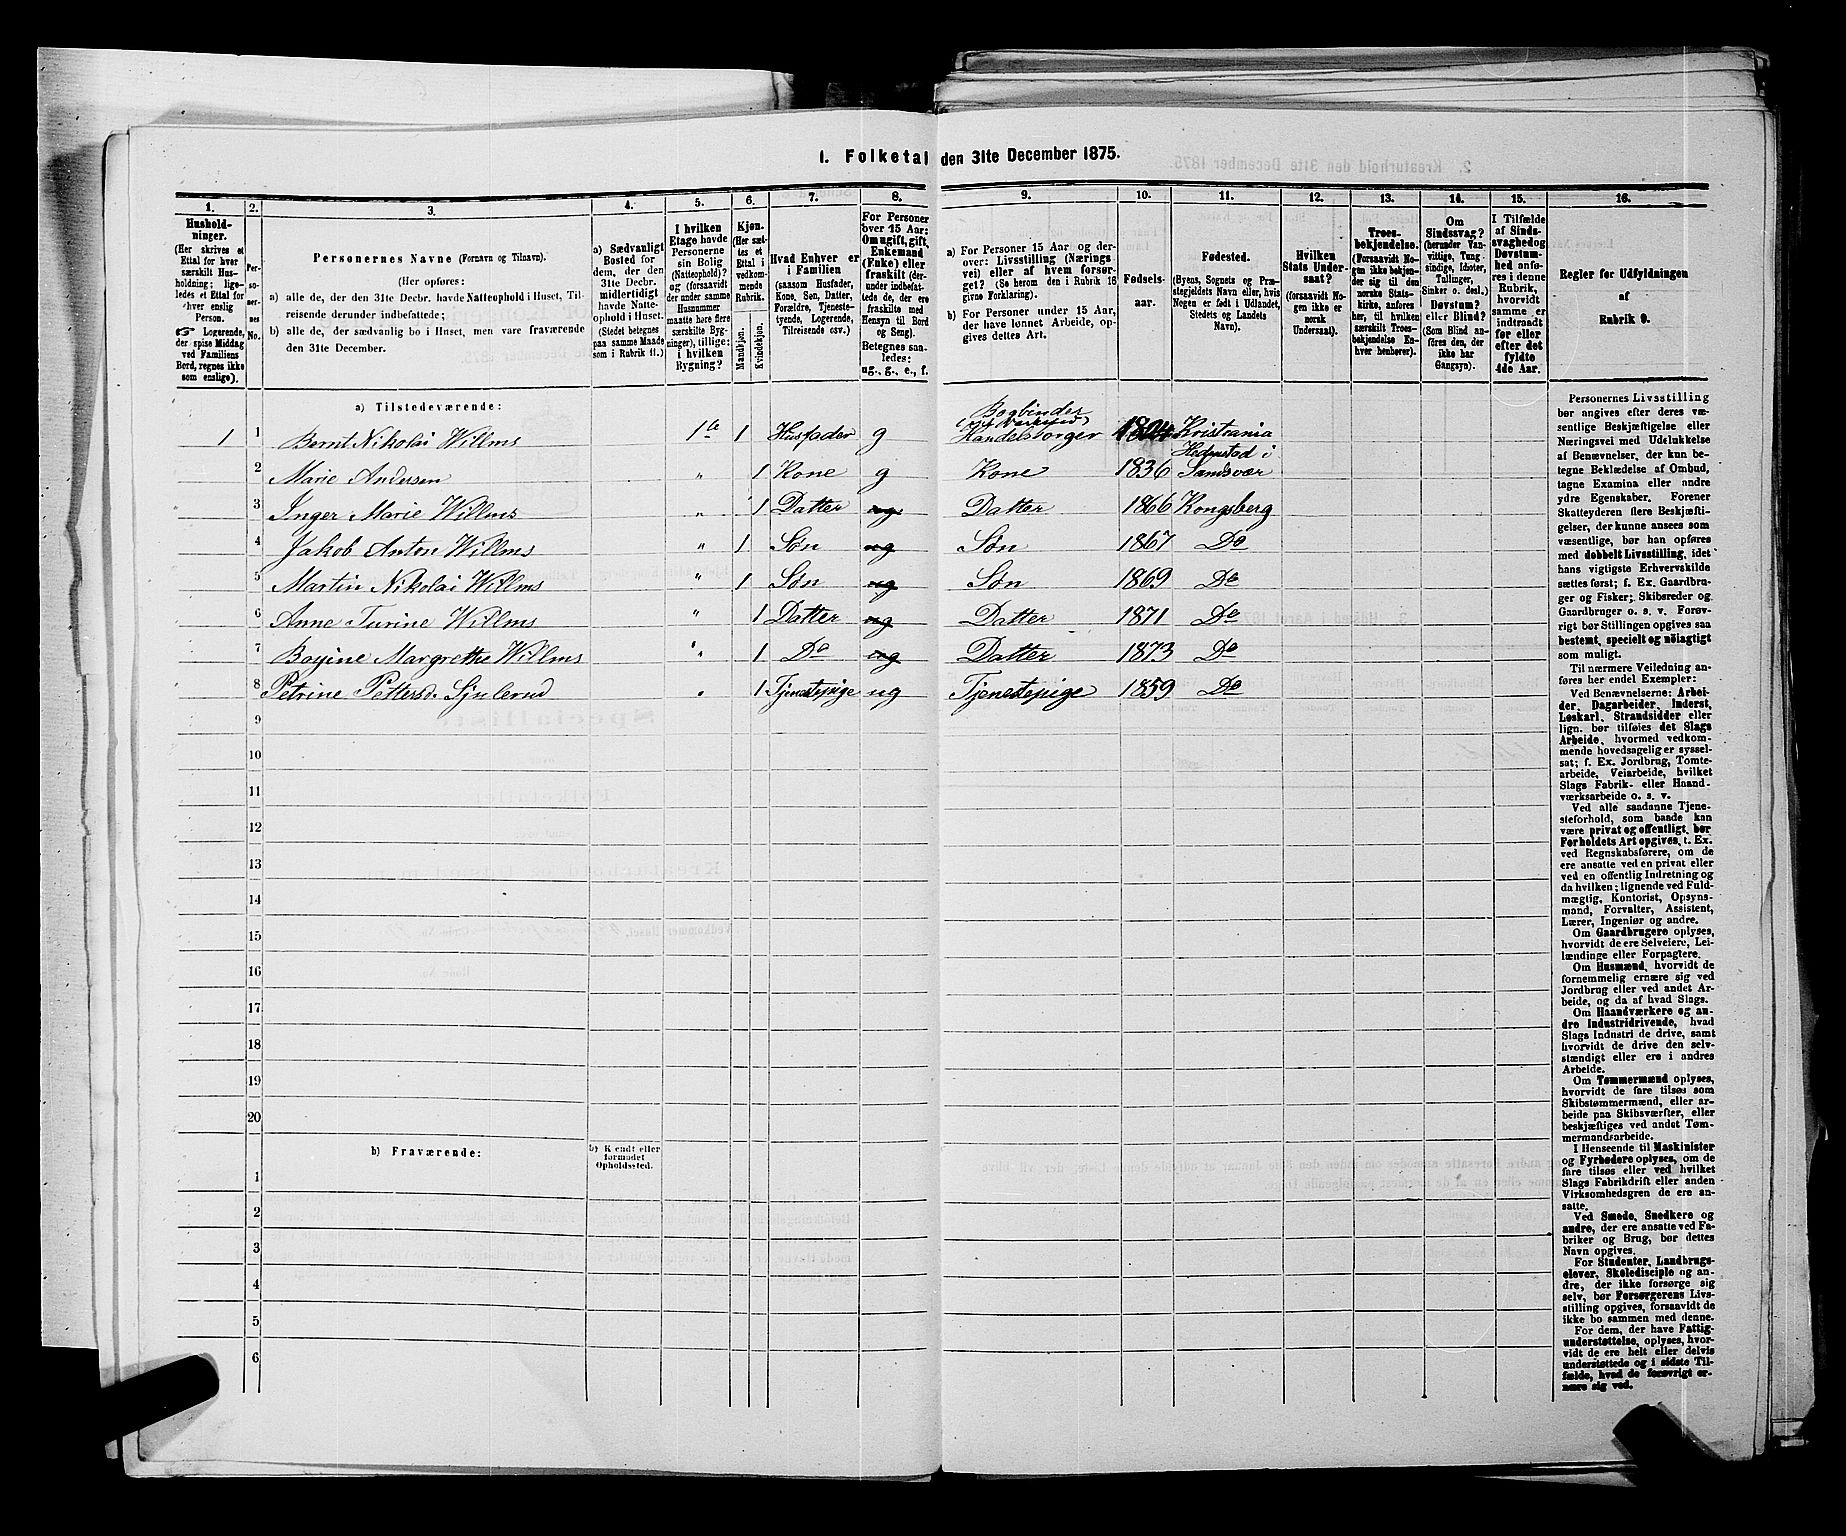 1. Folketal den 31te December 1875.
1.
2.
3.
4.
5.
6.
7.
8.
9.
10.
11.
12.
13.
14.
15.
16.
Hushold-
ninger.
(Her skrives et
Ettal for hver
særskilt Hus-
holdning; lige-
ledes et Ettal for
hver enslig
Person.
☞ Logerende,
der spise Middag
ved Familiens
Bord, regnes ikke
som enslige).
Per-
soner-
nes
No.
Personernes Navne (Fornavn og Tilnavn).
(Her opføres:
a) alle de, der den 31te Decbr. havde Natteophold i Huset, Til-
reisende derunder indbefattede;
b) alle de, der sædvanlig bo i Huset, men vare fraværende
den 31te December.
a) Sædvanligt
Bosted for
dem, der den
31te Decbr.
midlertidigt
havde Natte-
ophold i Huset.
(Stedet betegnes
paa samme Maade
som i Rubrik 11.)
I hvilken
Etage havde
Personerne
sin Bolig
(Natteophold)?
og (forsaavidt
der under samme
Husnummer
maatte høre flere
særskilte Byg-
ninger), tillige:
i hvilken
Bygning?
Kjøn.
(Her sæt-
tes et
Ettal i
vedkom-
mende
Rubrik.
Mandkjøn.
Kvindekjøn.
Hvad Enhver er
i Familien
(saasom Husfader,
Kone, Søn, Datter,
Forældre, Tjeneste-
tyende, Logerende,
Tilreisende osv.)
For Personer
over 15 Aar:
Om ugift, gift,
Enkemand
(Enke) eller
fraskilt (der-
under indbefat-
tede de, der ere
fraskilte med
Hensyn til Bord
og Seng).
Betegnes saa-
ledes:
ug., g., e., f.
a) For Personer 15 Aar og der-
over: Livsstilling (Nærings-
vei) eller af hvem forsør-
get? (Se herom den i Rubrik 16
givne Forklaring).
b) For Personer under 15 Aar,
der have lønnet Arbeide, op-
gives dettes Art.
Fødsels-
aar.
Fødested.
(Byens, Sognets og Præ-
stegjeldets Navn eller, hvis
Nogen er født i Udlandet,
Stedets og Landets
Navn).
Hvilken
Stats Under-
saat?
(forsaavidt No-
gen ikke er
norsk
Undersaat).
Troes-
bekjendelse.
(Forsaavidt No-
gen ikke bekjen-
der sig til den
norske Stats-
kirke, anføres
her, til hvilken
særskilt Troes-
bekjendelse En-
hver henhører).
Om
Sindssvag?
(herunder Van-
vittige, Tung-
sindige, Idioter,
Tullinger,
Sinker o. desl.)
Døvstum?
eller Blind?
(Som Blind an-
føres den, der
ikke har
Gangsyn).
I Tilfælde
af Sinds-
svaghed og
Døvstum-
hed anfø-
res i denne
Rubrik,
hvorvidt
samme er
indtraadt
før eller
efter det
fyldte
4de Aar.
Regler for Udfyldningen
af
Rubrik 9.
a) Tilstedeværende:
1 1 Bernt Nikolai Willms 1te 1 Husfader g Bogbinder
Handelsborger 1824 Kristiania
2 Marie Andersen " 1 Kone g Kone 1836 Hedenstad i
Sandsvær
3 Inger Marie Willms " 1 Datter ug Datter 1866 Kongsberg
4 Jakob Anton Willms " 1 Søn ug Søn 1867 Do
5 Martin Nikolai Willms " 1 Søn ug Søn 1869 Do
6 Anne Turine Willms " 1 Datter ug Datter 1871 Do
7 Bayine Margrethe Willms " 1 Do ug Datter 1873 Do
8 Petrine Pettersd. " 1 Tjenestepige ug Tjenestepige 1859 Do
9
10
11
12
13
14
15
16
17
18
19
20
b) Fraværende:
b) Kjendt eller
formodet
Opholdssted.
1
2
3
4
5
6
Personernes Livsstilling
bør angives efter deres væ-
sentlige Beskjæftigelse eller
Næringsvei med Udelukkelse
af Benævnelser, der kun be-
tegne Beklædelse af Ombud,
tagne Examina eller andre
ydre Egenskaber. Forener
Skatteyderen flere Beskjæfti-
gelser, der kunne ansees som
væsentlige, bør han opføres
med dobbelt Livsstilling, idet
hans vigtigste Erhvervskilde
sættes først; f. Ex. Gaardbru-
ger og Fisker; Skibsreder og
Gaardbruger o. s. v. Forøv-
rigt bør Stillingen opgives saa
bestemt, specielt og nöiagtigt
som muligt.
Til nærmere Veiledning an-
føres her endel Exempler:
Ved Benævnelserne: Arbei-
der, Dagarbeider, Inderst,
Løskarl, Strandsidder eller
lign. bør tilføies det Slags
Arbeide, hvormed vedkom-
mende hovedsagelig er syssel-
sat; f. Ex. Jordbrug, Tomte-
arbeide, Veiarbeide, hvilket
Slags Fabrik- eller Haand-
værksarbeide o. s. v.
Ved alle saadanne Tjene-
steforhold, som baade kan
være privat og offentligt, bør
Forholdets Art opgives, t. Ex.
ved Regnskabsførere, om de
ere ansatte ved en privat eller
ved en offentlig Indretning og
da hvilken; lignende ved Fuld-
mægtig, Kontorist, Opsyns-
mand, Forvalter, Assistent,
Lærer, Ingeniør og andre.
Om Gaardbrugere oplyses,
hvorvidt de ere Selveiere, Lei-
lændinge eller Forpagtere.
Om Husmænd, hvorvidt de
fornemmelig ernære sig ved
Jordbrug eller ved andet Ar-
beide, og da af hvad Slags.
Om Haandværkere og an-
dre Industridrivende, hvad
Slags Industri de drive, samt
hvorvidt de drive den selv-
stændigt eller ere i andres
Arbeide.
Om Tømmermænd oplyses,
hvorvidt de fare tilsøs som
Skibstømmermænd, eller ar-
beide paa Skibsværfter, eller
beskjæftiges ved andet Tøm-
mermandsarbeide.
I Henseende til Maskinister
og Fyrbødere oplyses, om de
fare tilsøs eller ved hvilket
Slags Fabrikdrift eller anden
Virksomhedsgren de ere an-
satte.
Ved Smede, Snedkere og
andre, der ere ansatte ved Fa-
briker og Brug, bør dettes
Navn opgives.
For Studenter, Landbrugs-
elever, Skoledisciple og an-
dre, der ikke forsørge sig
selv, bør Forsørgerens Livs-
stilling opgives, forsaavidt de
ikke bo sammen med denne.
For dem, der have Fattig-
understøttelse, oplyses, hvor-
vidt de ere helt eller delvis
understøttede og i sidste Til-
fælde, hvad de forøvrigt er-
nære sig ved.